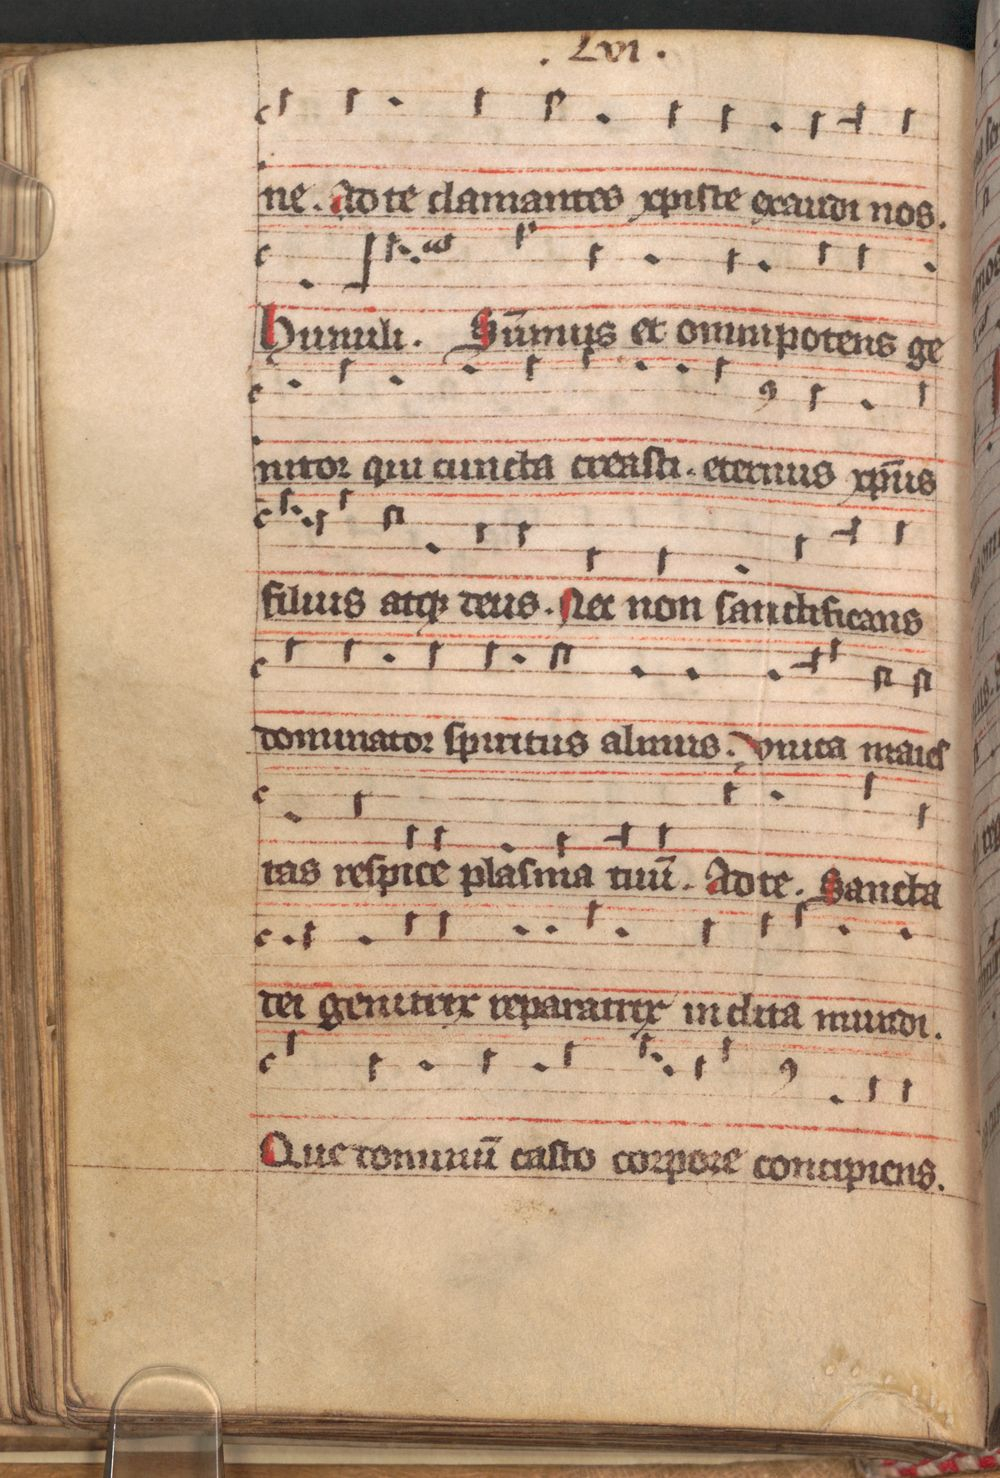 . Lvi .
ne. Ad te clamantes xpiste exaudi nos.
Humili. Sūmus et omnipotens ge
nitor qui cuncta creasti. eternus xp̄us
filius atqꝫ deus. Nec non sanctificans
dominator spiritus almus. Vnica maies
tas respice plasma tuū. Ad te. Sancta
dei genitrix reparatrix inclita mundi.
Que dominū casto corpore concipiens.